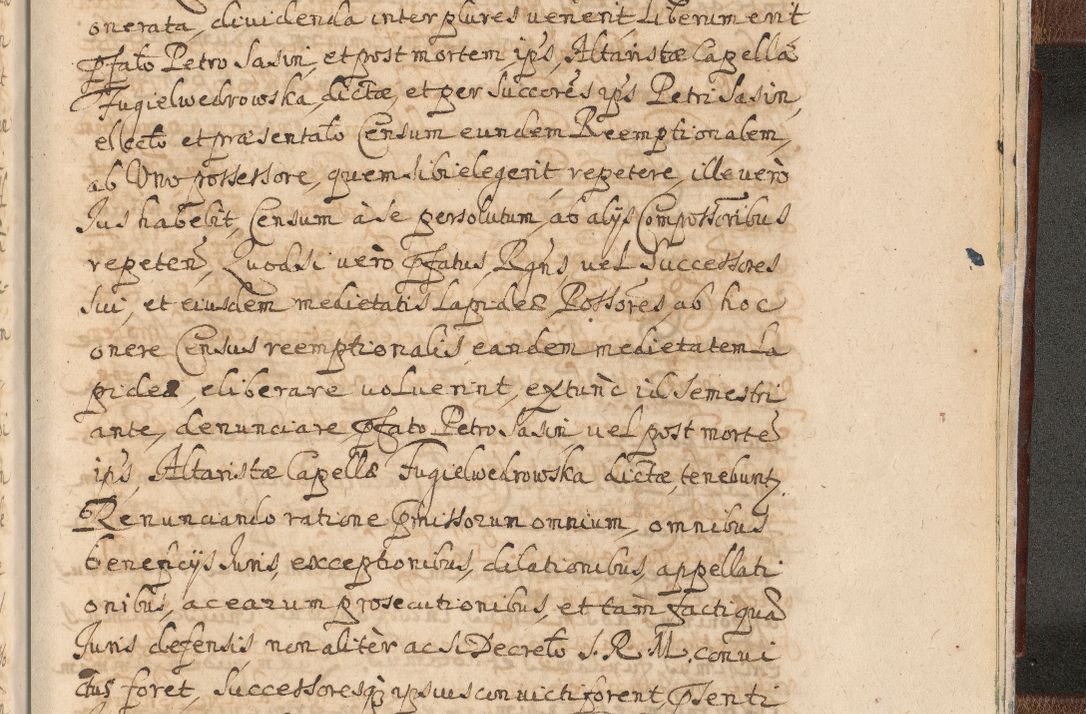 onerata, dividenda inter plures venerit, Liberum erit
pfato Petro Sasin, et post mortem ips, Altaristæ Capellæ
Fugielwedrowska, dictæ, et per Succores ips Petri Sasin,
ellecto et præsentato Censum eundem Reemptionalem,
ab Uno possessore, quem sibi elegerit, repetere, ille vero
Jus habebit, Censum à se persolutum, ab alijs Compossoribus
repeten, Quod si vero pfatus Rgns vel Successores
sui, et eiusdem medietatis Lapideæ Possores, ab hoc
onere Census reemptionalis, eandem medietatem La
pideæ, eliberare voluerint, extunc id Semestri
ante, denunciare pfato Petro Sasin vel post morte
ips, Altaristæ Capellæ Fugielwedrowska dictæ, tenebuntz
Renunciando ratione pmissorum omnium, omnibus
beneficijs Juris, exceptionibus, dilationibus, appellati
onibus, ac earum prosecutionibus, et tam facti qua
Juris defensis, non alitèr ac si Decreto S. R. M. convi
ctus foret, Successoresq ipsius convicti forent, psenti